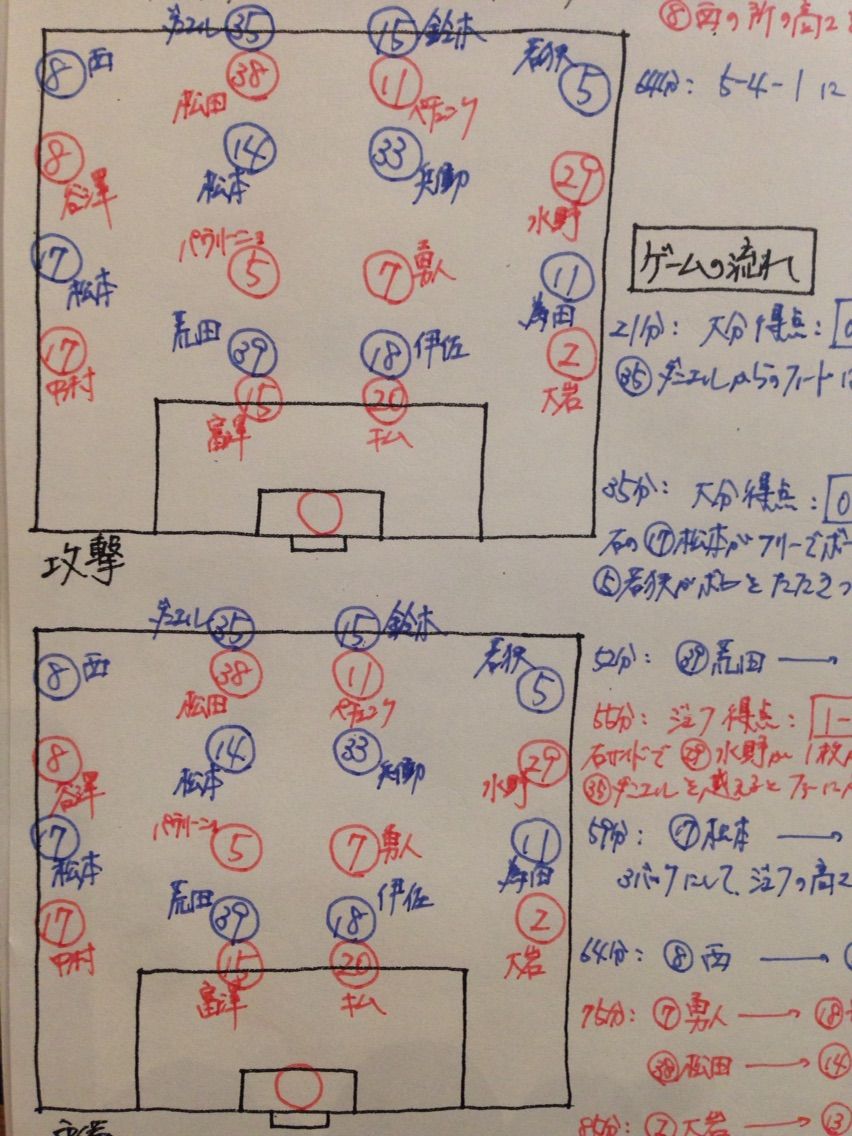 ダニエル 35 15 鈴木
8 西 38 11 若狭 5
松田 ペチュンク
14 33
8 松本 兵働 29
谷澤 水野
パウリーニョ 勇人
17 5 7 11
松本 為田
荒田 39 18 伊佐
17 2
中村 15 20 大岩
富澤 キム
攻撃
⑧西の所の高さ
64分: 5-4-1に
ゲームの流れ
21分: 大分得点: 0
㉟ダニエルからのフィードに
35分: 大分得点: 0
右の⑰松本がフリーでボー
⑤若狭が
52分: ㊴荒田 →
55分: ジェフ得点: 1-
右サイドで㉙水野が1枚
㉟ダニエルを越えるとフリーに
59分: ⑰松本 →
3バックにして、ジェフの高さ
64分: ⑧西 →
75分: ⑦勇人 → ⑱
㊳松田 → ⑭
85分: ②大岩 → ⑬
ダニエル 35 15 鈴木
8 西 38 11 若狭 5
松田 ペチュンク
14 33
8 松本 兵働 29
谷澤 水野
パウリーニョ 勇人
17 5 7 11
松本 為田
荒田 39 18 伊佐
17 2
中村 15 20 大岩
富澤 キム